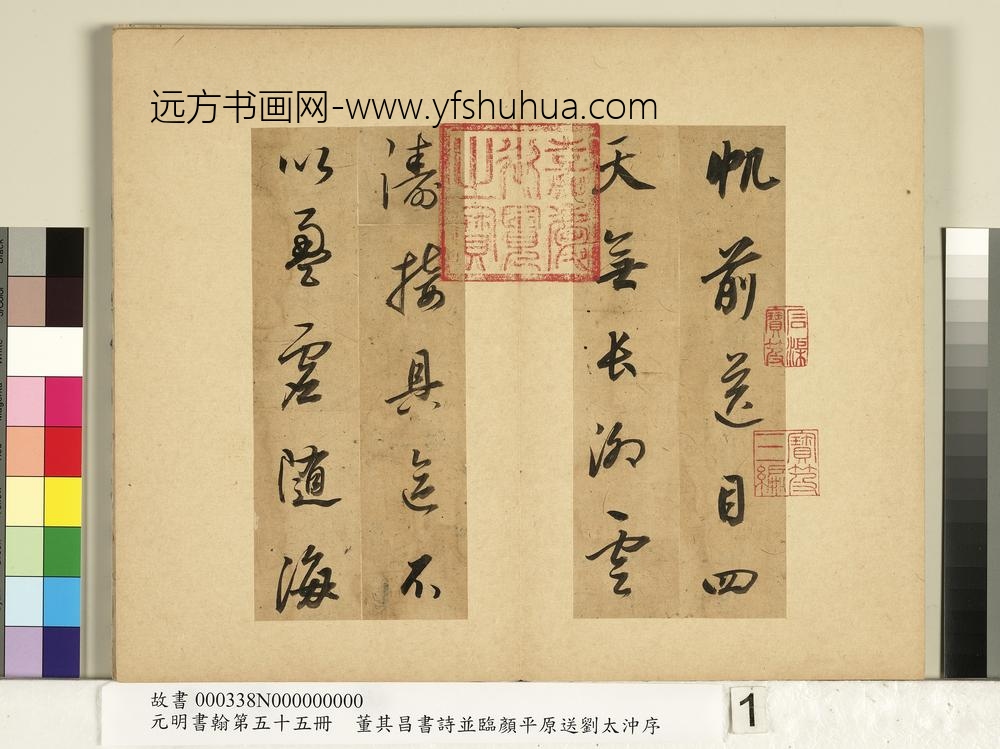 远方书画网-www.yfshuhua.com
帆前送目四
天無長泖雲
濤接具區不
以盈虛隨海
嘉慶御覽之寶
石渠寶笈
寶笈三編
故書 000338N000000000
元明書翰第五十五冊 董其昌書詩並臨顏平原送劉太沖序
1